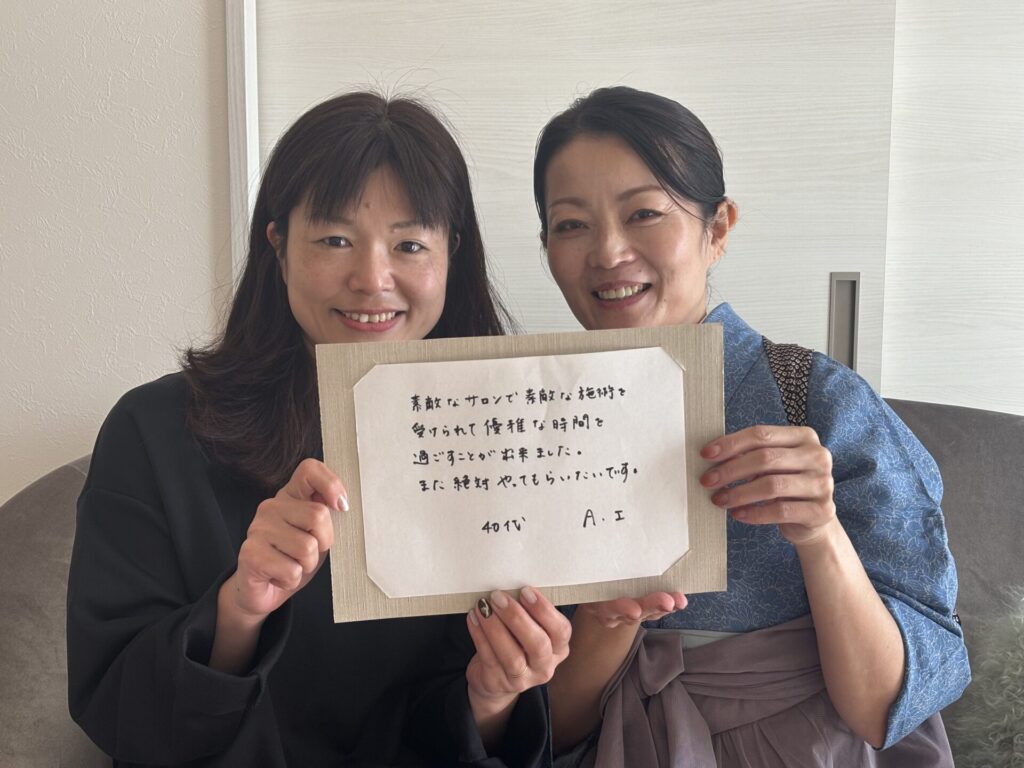 素敵なサロンで素敵な施術を
受けられて優雅な時間を
過ごすことが出来ました。
また絶対やってもらいたいです。
40代 A.I